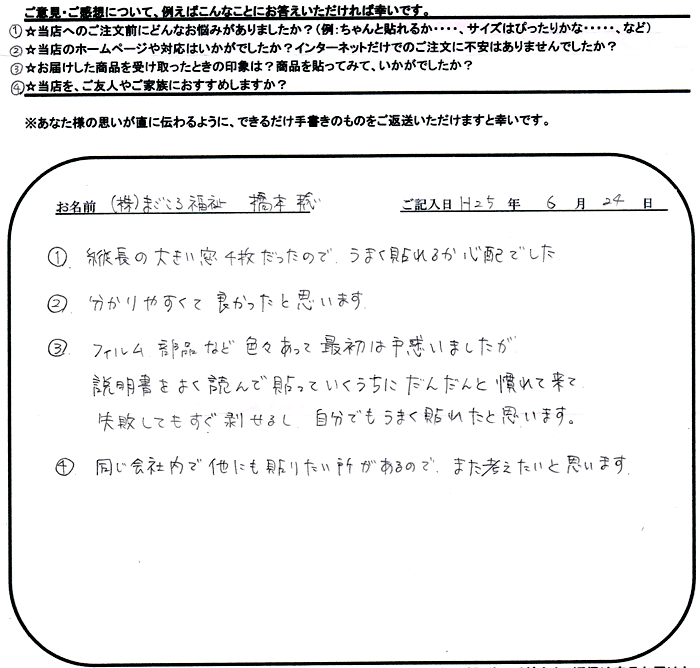 ご意見・ご感想について、例えばこんなことにお答えいただければ幸いです。
①☆当店へのご注文前にどんなお悩みがありましたか？（例：ちゃんと貼れるか・・・・、サイズはぴったりかな・・・・・、など）
②☆当店のホームページや対応はいかがでしたか？インターネットだけでのご注文に不安はありませんでしたか？
③☆お届けした商品を受け取ったときの印象は？商品を貼ってみて、いかがでしたか？
④☆当店を、ご友人やご家族におすすめしますか？
※あなた様の思いが直に伝わるように、できるだけ手書きのものをご返送いただけますと幸いです。
お名前 (株)まごころ福祉 橋本 聡 ご記入日 H25 年 6 月 24 日
① 縦長の大きい窓4枚だったので、うまく貼れるか心配でした
② 分かりやすくて良かったと思います
③ フィルム、部品など色々あって最初は戸惑いましたが
説明書をよく読んで貼っていくうちにだんだんと慣れて来て
失敗してもすぐ剥せるし、自分でもうまく貼れたと思います。
④ 同じ会社内で他にも貼りたい所があるので、また考えたいと思います